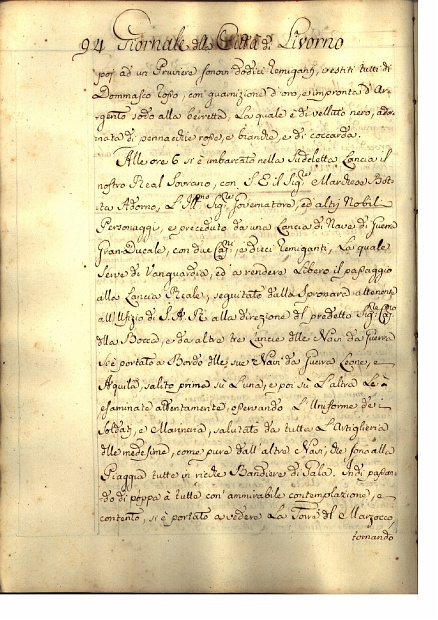 94 Giornale dlla Città di Livorno
poj ad un Pruviere sonovi dodici remiganti, vestiti tutti di
Dommasco rosso, con guarnizione d'oro, e impronta d'Ar-
gento sodo alla berretta, la quale è di velluto nero, ador-
nata di pennacchie rosse, e bianche, e di coccarda.
Alle ore 6 si è imbarcato nella Sudetta Lancia il
nostro Real Sovrano, con S. E. il Sigre Marchese Bot-
ta Adorno, L'Illmo Sigre Governatore, ed altri Nobili
Personaggi, e preceduto da una Lancia di Nave di Guerra
GranDucale, con due e dieci remiganti, La quale
Serve di Vanguardia, ed a rendere Libero il passaggio
alla Lancia Reale, seguitato dalla Speronara attenente
all'Ufizio di S. A. R. alla direzione del predetto Sigre
dlla Bocca, e da altre tre Lancie dlle Navi da Guerra
Si è portato a Bordo dlle sue Navi da Guerra Leone, e
Aquila, salito prima sù L'una, e poi sù L'altra Le à
esaminate attentamente, osservando L'Uniforme de
Soldati, e Marineria, salutato da tutta L'Artiglieria
dlle medesime, come pure dall'altre Navi, che sono alla
Piaggia tutte in ricche Bandiere di Gala. Indi passan-
do di poppa à tutte con ammirabile contemplazione, e
contento, si è portato a vedere La Torre del Marzocco,
tornando